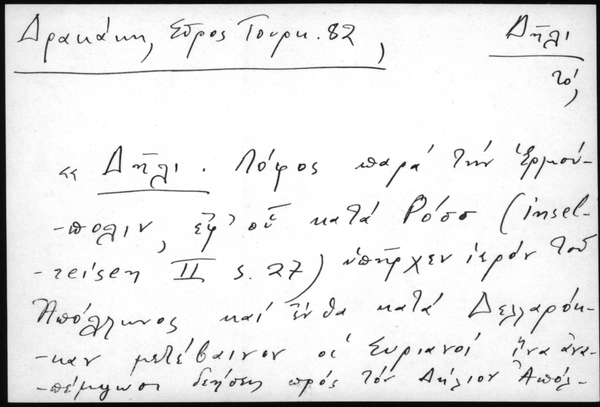 Δρακάκη, Σῦρος Τουρκ. 82,
Δῆλι
τό,
« Δῆλι. Λόφος παρά τήν Ἑρμού-
-πολιν, ἐφ' οὗ κατά Ρόσς (insel-
-reisen II s. 27) ὑπῆρχεν ἱερόν τοῦ
Ἀπόλλωνος καί ἔνθα κατά Δελλαρόκ-
-καν μετέβαινον οἱ Συριανοί ἵνα ἀνα-
-πέμψωσι δεήσεις πρός τόν Δήλιον Ἀπόλ-